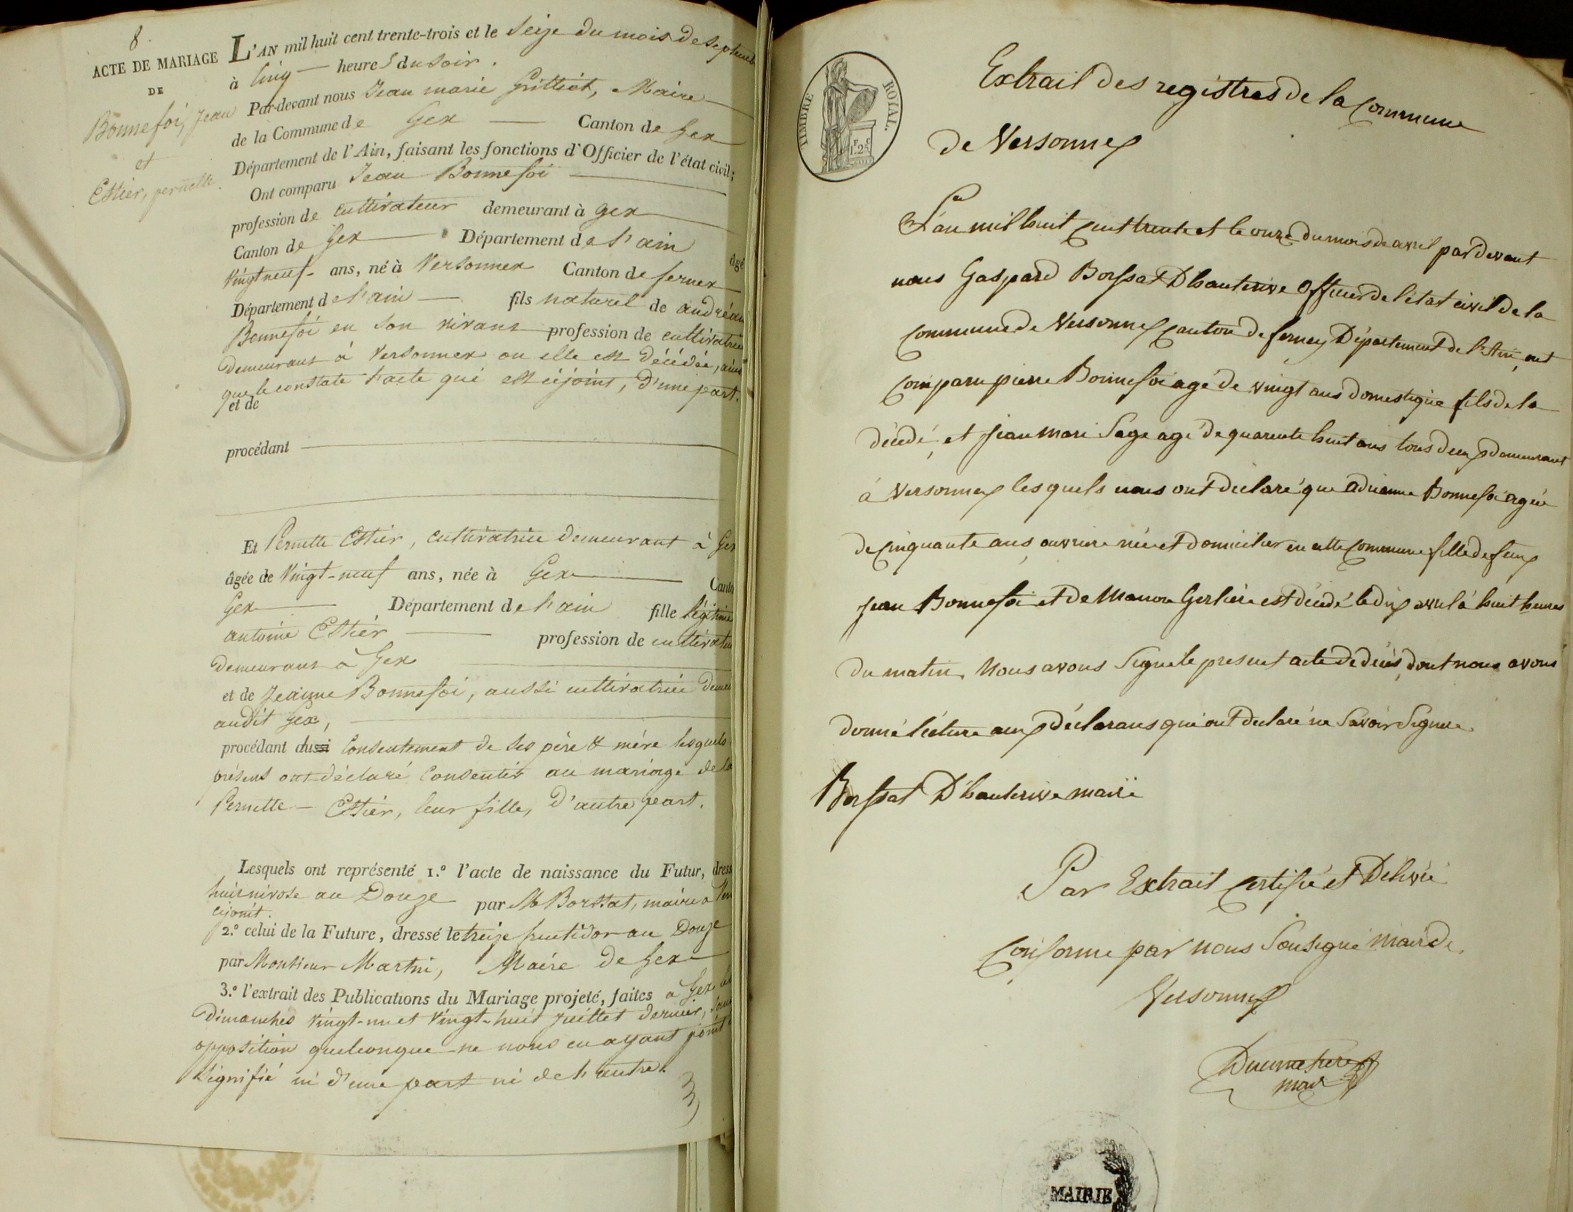 8.
ACTE DE MARIAGE
DE
Bonnefoi, Jean
et
Estier, pernette.
L'AN mil huit cent trente-trois et le Seize du mois de Septembre
à Cinq heures du Soir.
Par-devant nous Jean marie Maire
de la Commune de Gex Canton de Gex
Département de l'Ain, faisant les fonctions d'Officier de l'état civil;
Ont comparu Jean Bonnefoi
profession de cultivateur demeurant à gex
Canton de Gex Département de l'ain âgé
Vingt neuf ans, né à Versonnex Canton de ferney
Département de l'ain fils naturel de
Bonnefoi en son vivant profession de cultivatrice
demeurant à Versonnex ou elle est décédée, ainsi
que le constate l'acte qui est cijoint, d'une part.
et de
procédant
Et Pernette Estier, cultivatrice demeurant à Gex
âgée de Vingt-neuf ans, née à Gex Canton
Gex Département de l'ain fille légitime
antoine Estier profession de cultivateur
demeurant à Gex
et de Jeanne Bonnefoi, aussi cultivatrice
audit Gex,
procédant aussi Consentement de ses père & mère lesquels
présens ont déclaré Consentir au mariage de la
Pernette Estier, leur fille, d'autre part.
Lesquels ont représenté 1.º l'acte de naissance du Futur, dressé
huit nivose an Douze par Mr Borssat, maire à
cijoint.
2.º celui de la Future, dressé le treize fructidor an Douze
par Monsieur Martin, Maire de Gex
3.º l'extrait des Publications du Mariage projeté, faites à Gex les
Dimanches vingt-un et vingt-huit Juillet dernier,
opposition quelconque ne nous en ayant point
Signifié ni d'une part ni de l'autre.
TIMBRE ROYAL.
Extrait des registres de la Commune
de Versonnex
L'an mil huit Cent trente et le onze du mois de avril par devant
nous Gaspard Borssat Dhauterive Officier de l'état civil de la
Commune de Versonnex canton de ferney Département de l'Ain, ont
Comparu pierre Bonnefoi agé de vingt ans domestique fils de la
décédé, et Jean Marie Sage agé de quarante huit ans tous deux demeurant
à Versonnex lesquels nous ont déclaré que adrianne Bonnefoi agée
de Cinquante ans, ouvriere née et domiciliée en cette Commune fille de feux
Jean Bonnefoi et de Manon Gerlier est décédé le dix avril à huit heures
du matin, Nous avons Signé le present acte de décès, dont nous avons
donné lécture aux déclarans qui ont declaré ne Savoir Signer.
Borssat Dhauterive maire
Par Extrait Certifié et Délivré
Conforme par nous Sousigné Maire de
Versonnex
MAIRIE